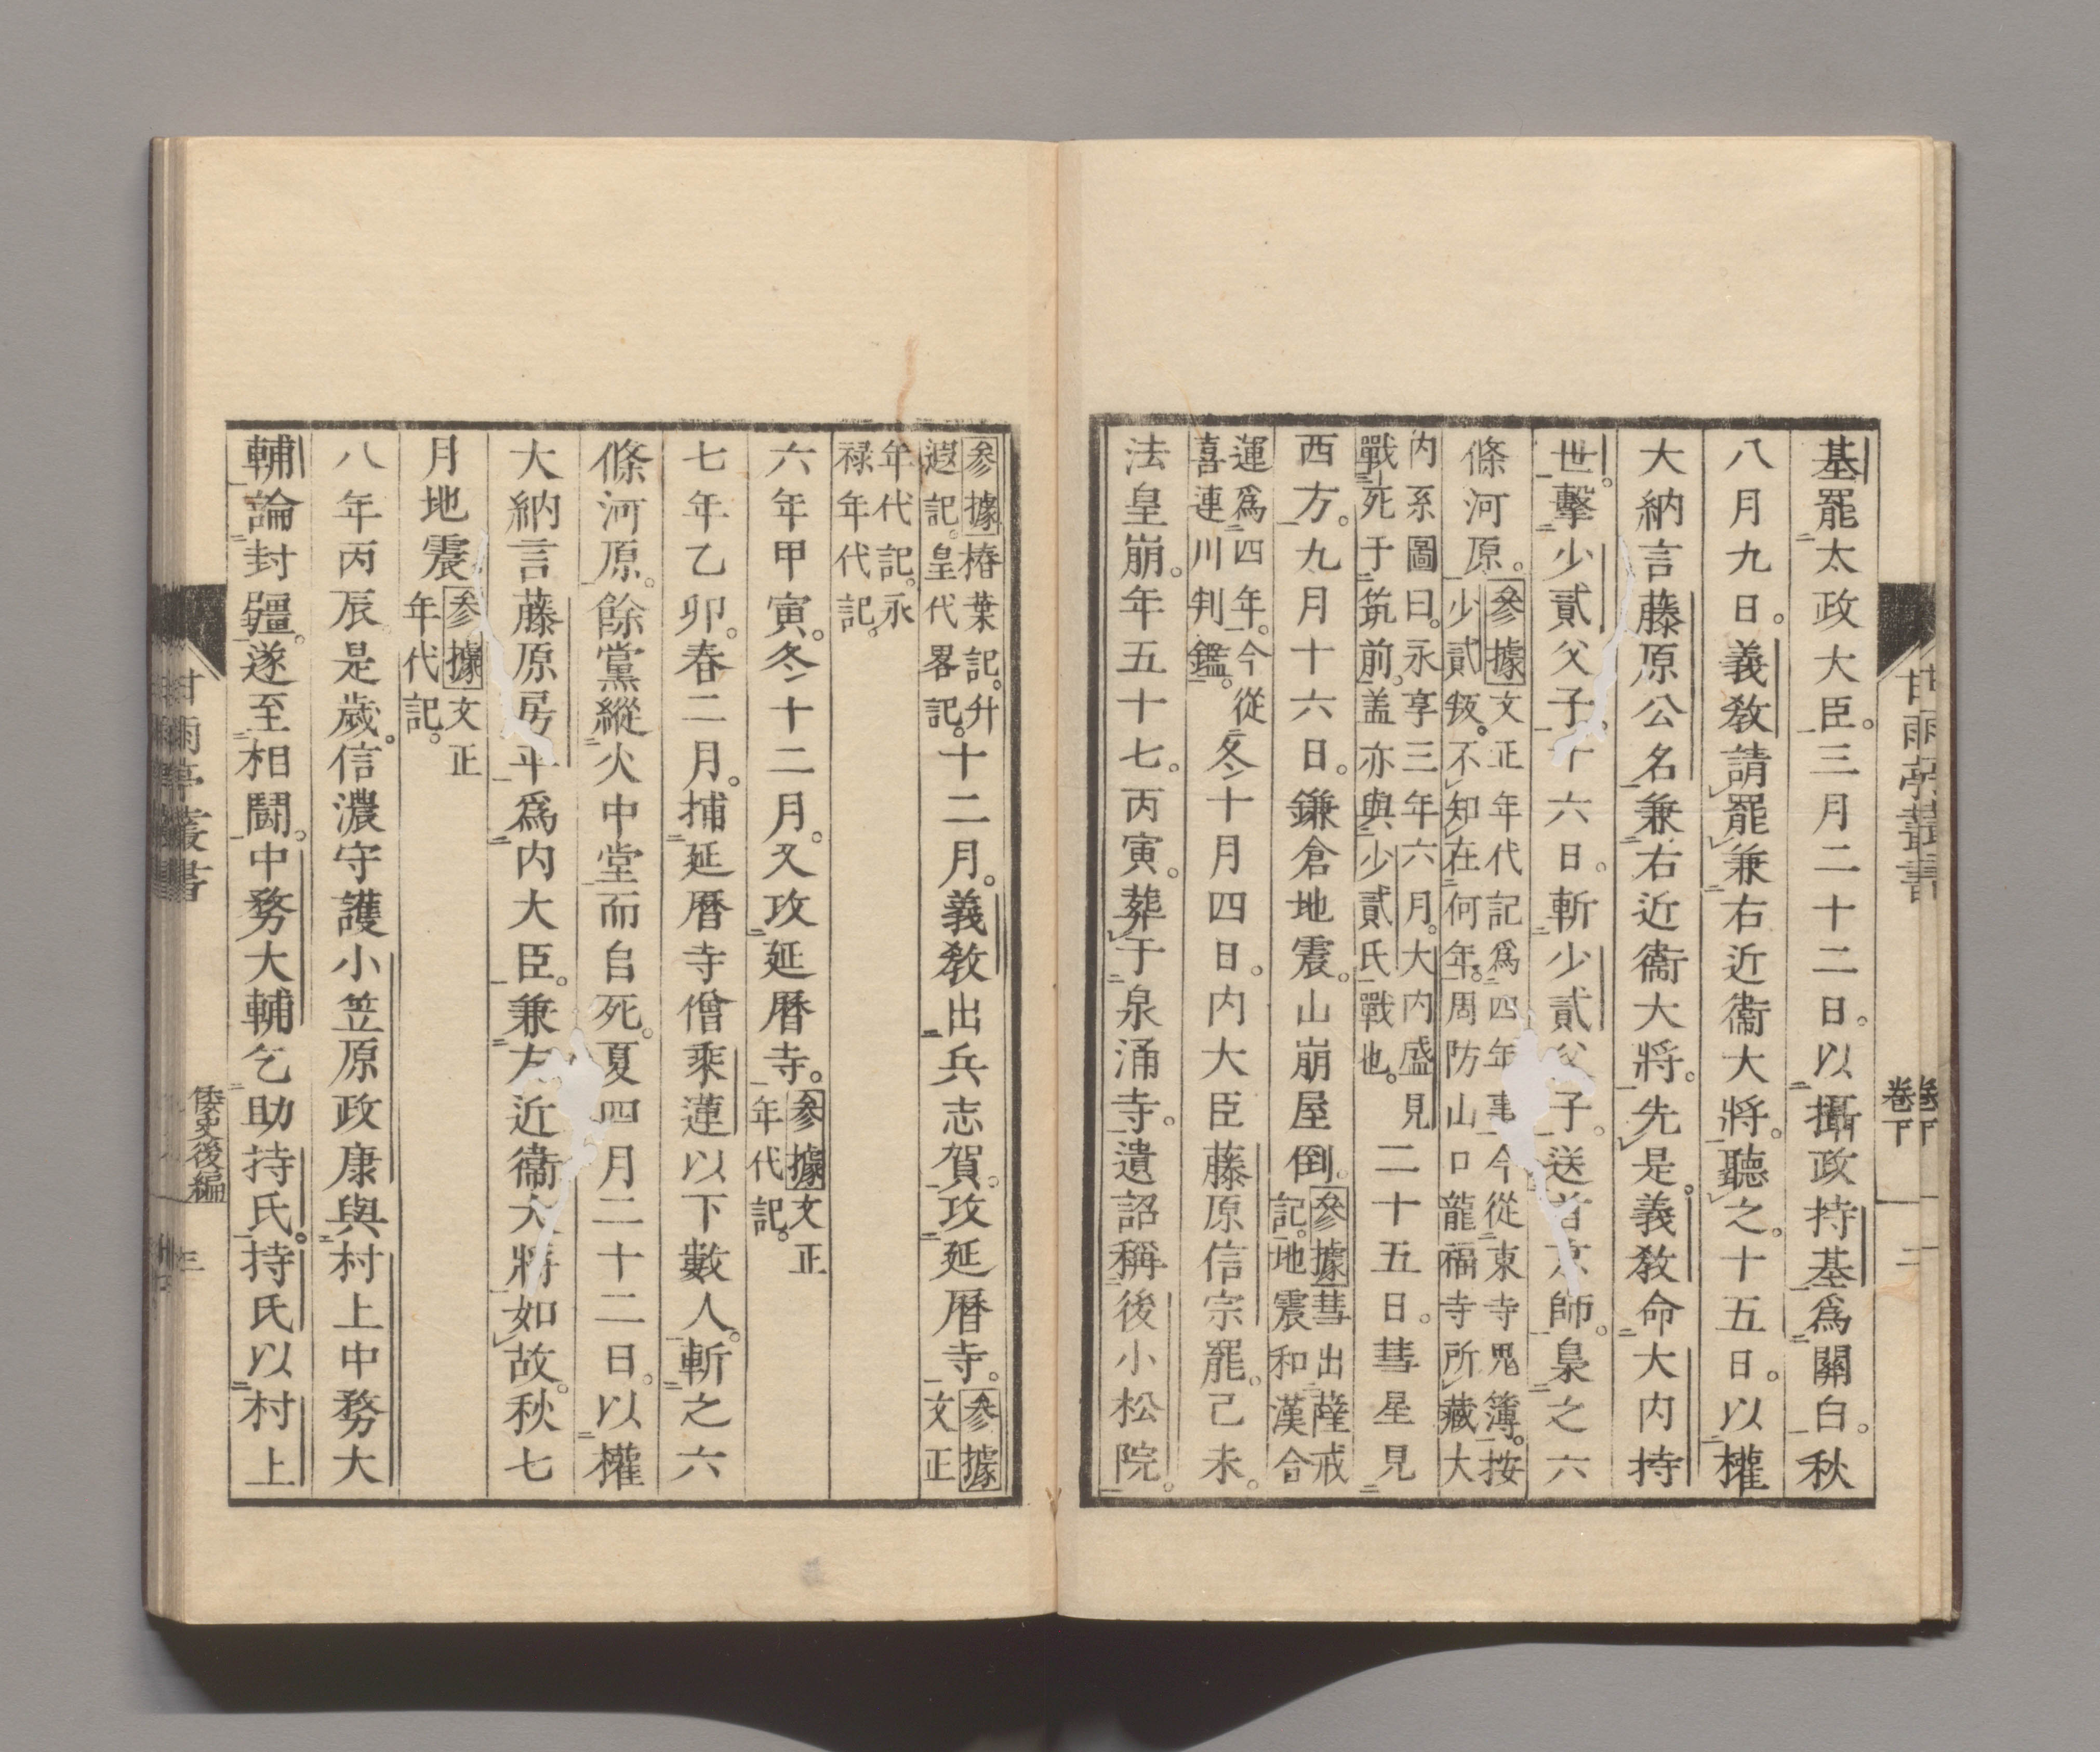 基罷太政大臣。三月二十二日。以攝政持基爲關白。秋
八月九日。義教請罷兼右近衞大將。聽之。十五日。以權
大納言藤原公名兼右近衞大將。先是。義教命大内持
世。擊少貳父子。十六日。斬少貳父子。送首京師。梟之六
條河原。
參據文正年代記爲四年事今從東寺鬼簿。按
少貳叛。不知在何年。周防山口龍福寺所藏大
内系圖曰。永享三年六月。大内盛見
戰死于筑前。盖亦與少貳氏戰也。
二十五日。彗星見
西方。九月十六日。鎌倉地震。山崩屋倒。
參據彗出薩戒
記。地震和漢合
運爲四年。今從
喜連川判鑑。
冬十月四日。内大臣藤原信宗罷。己未。
法皇崩。年五十七。丙寅。葬于泉涌寺。遺詔稱後小松院。
甘雨亭叢書
卷下
二
參據椿葉記。升
遐記。皇代畧記。
十二月。義教出兵志賀。攻延暦寺。
參據
文正
年代記。永
禄年代記。
六年甲寅。冬十二月。又攻延暦寺。
參據文正
年代記。
七年乙卯。春二月。捕延暦寺僧乘蓮以下數人。斬之六
條河原。餘黨縱火中堂而自死。夏四月二十二日。以權
大納言藤原房平爲内大臣。兼左近衞大將如故。秋七
月地震
參據文正
年代記。
八年丙辰。是歲。信濃守護小笠原政康與村上中務大
輔論封疆。遂至相鬪。中務大輔乞助持氏。持氏以村上
甘雨亭叢書
倭史後編
三